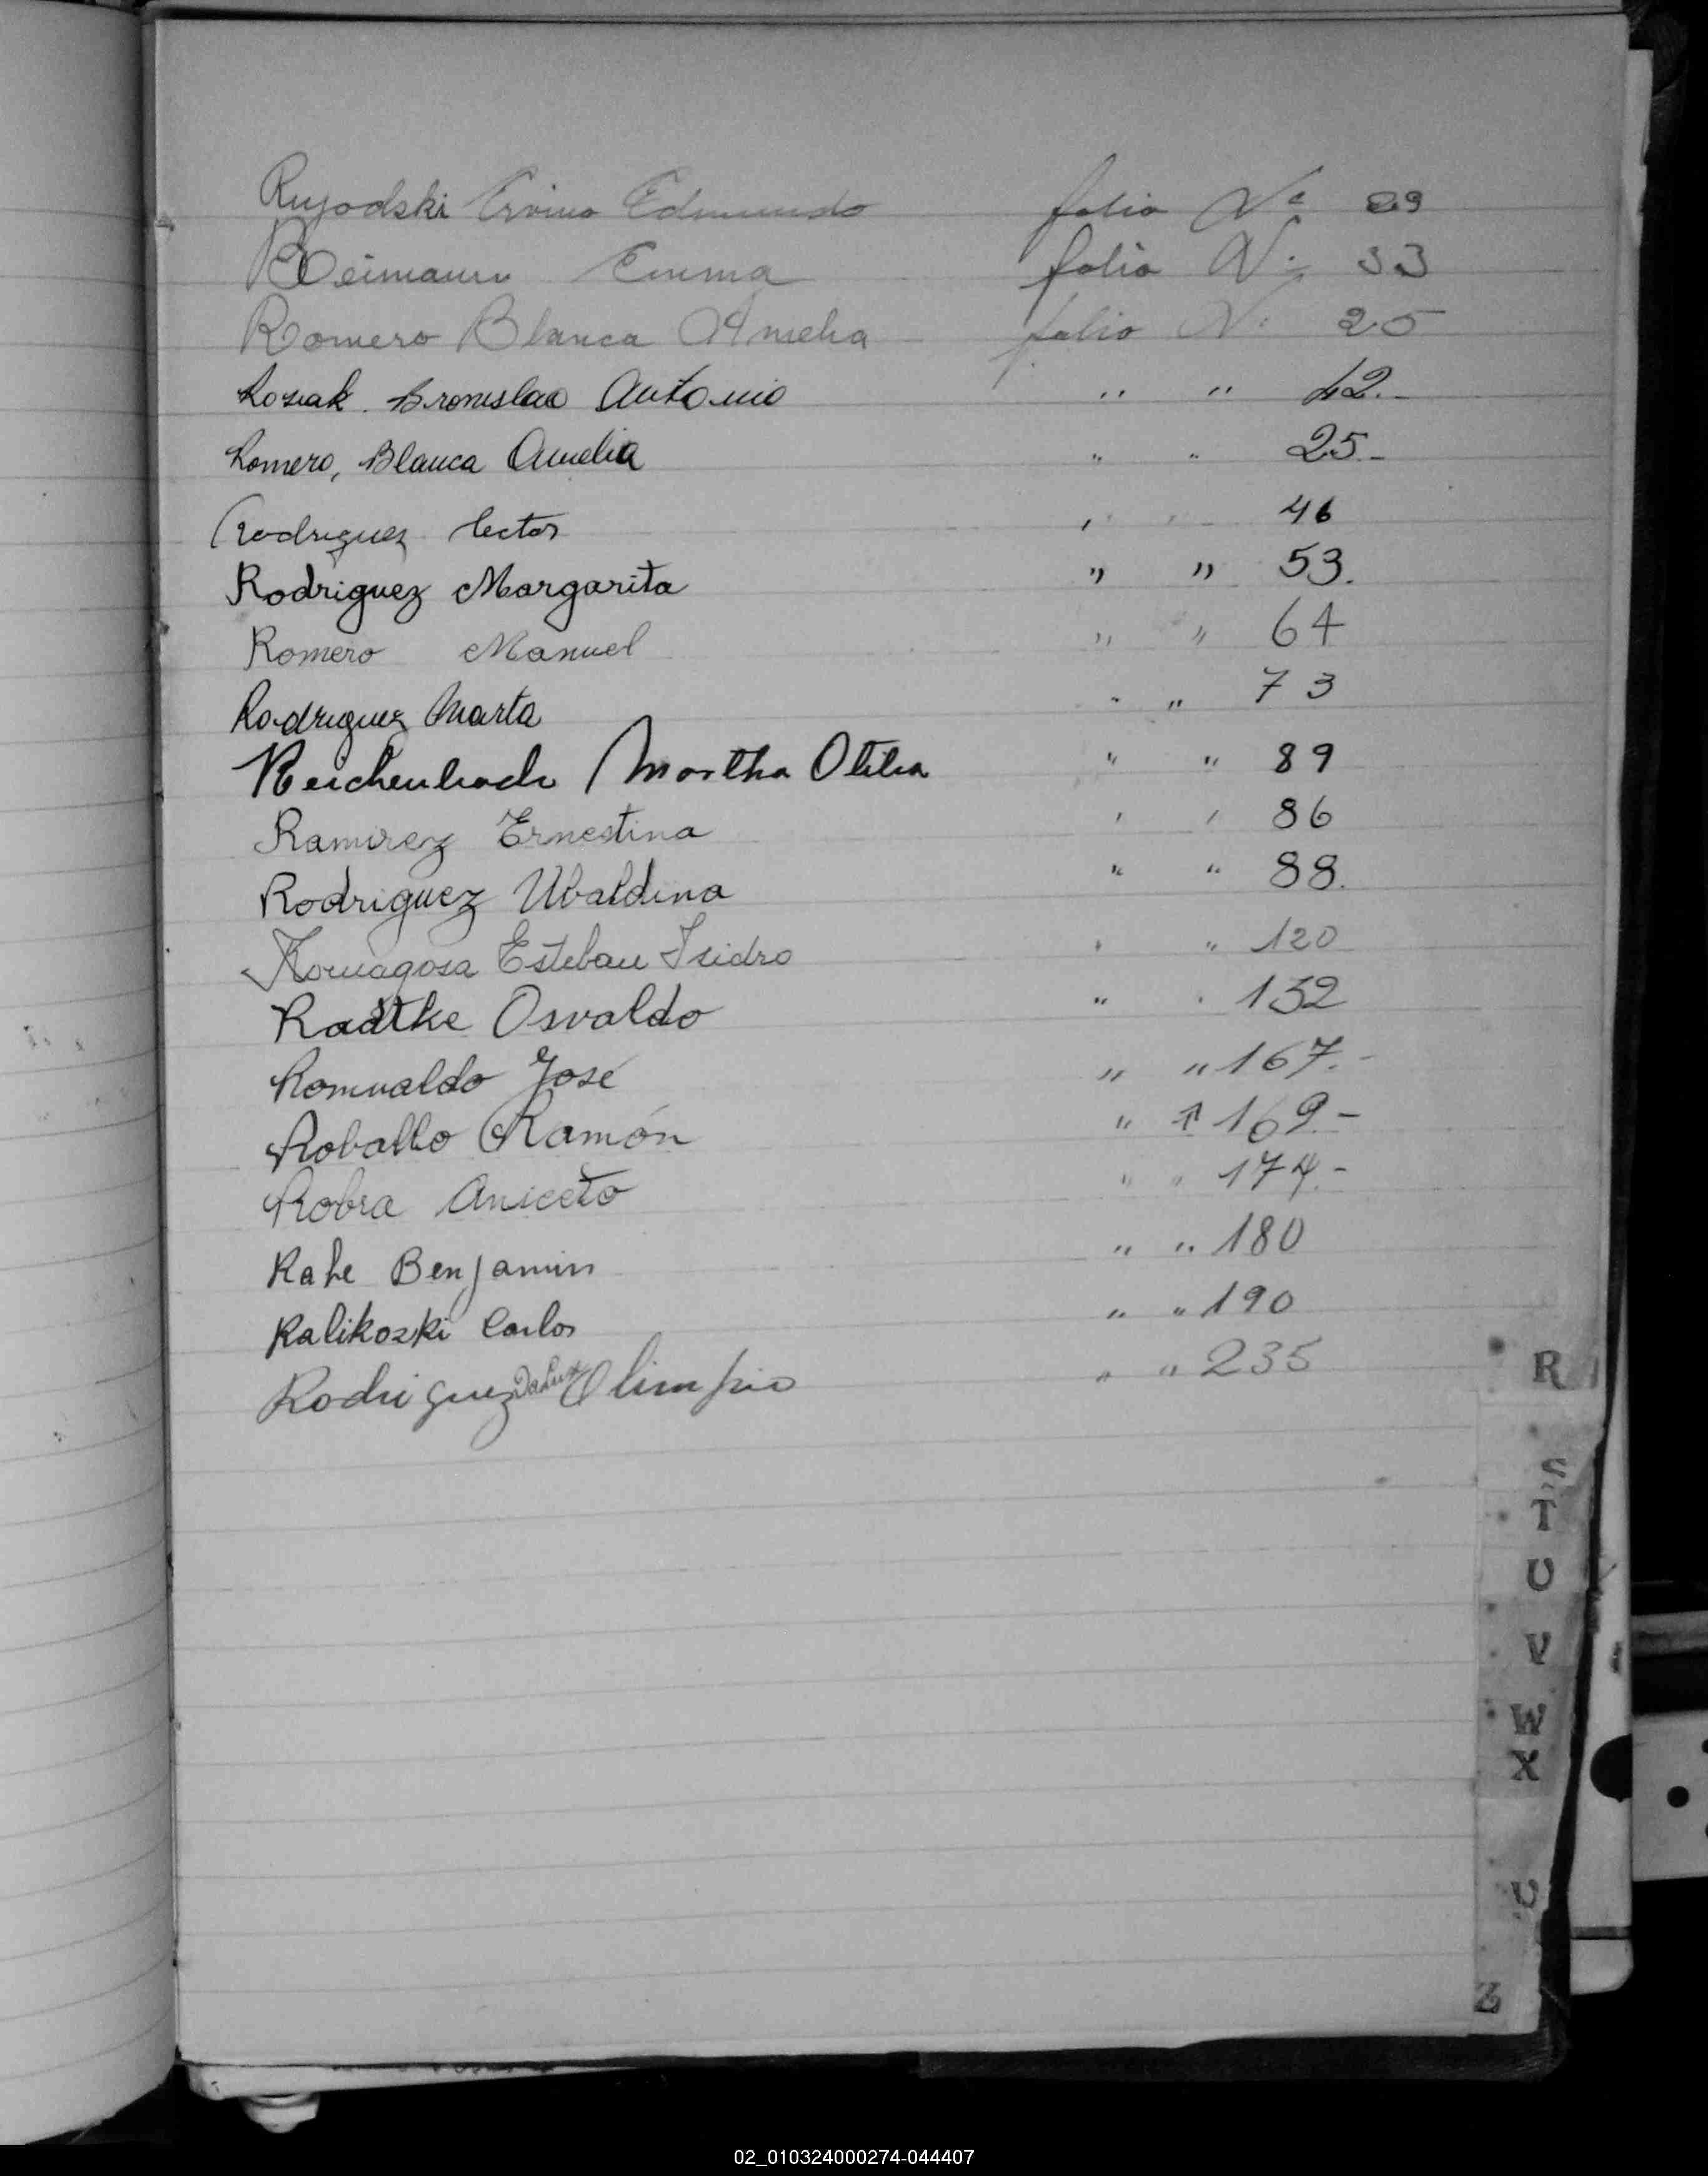 Rujodski Ervino Edmundo folio Nº 29
Reimann Emma folio Nº 33
Romero Blanca Amelia folio Nº 25
Rosiak Bronislao Antonio " " 42.-
Romero, Blanca Amelia " " 25.-
Rodriguez Hector " " 46
Rodriguez Margarita " " 53.
Romero Manuel " " 64
Rodriguez Marta " " 73
Reichenbach Martha Otilia " " 89
Ramirez Ernestina " " 86
Rodriguez Ubaldina " " 88.
Romagosa Esteban Isidro " " 120
Radtke Osvaldo " " 152
Romualdo José " " 167.-
Roballo Ramón " " 169.-
Robra Aniceto " " 174.-
Rahe Benjamin " " 180
Ralikozki Carlos " " 190
Rodriguez Da Luz Olimpio " " 235
R
S
T
U
V
W
X
U
Z
02_010324000274-044407